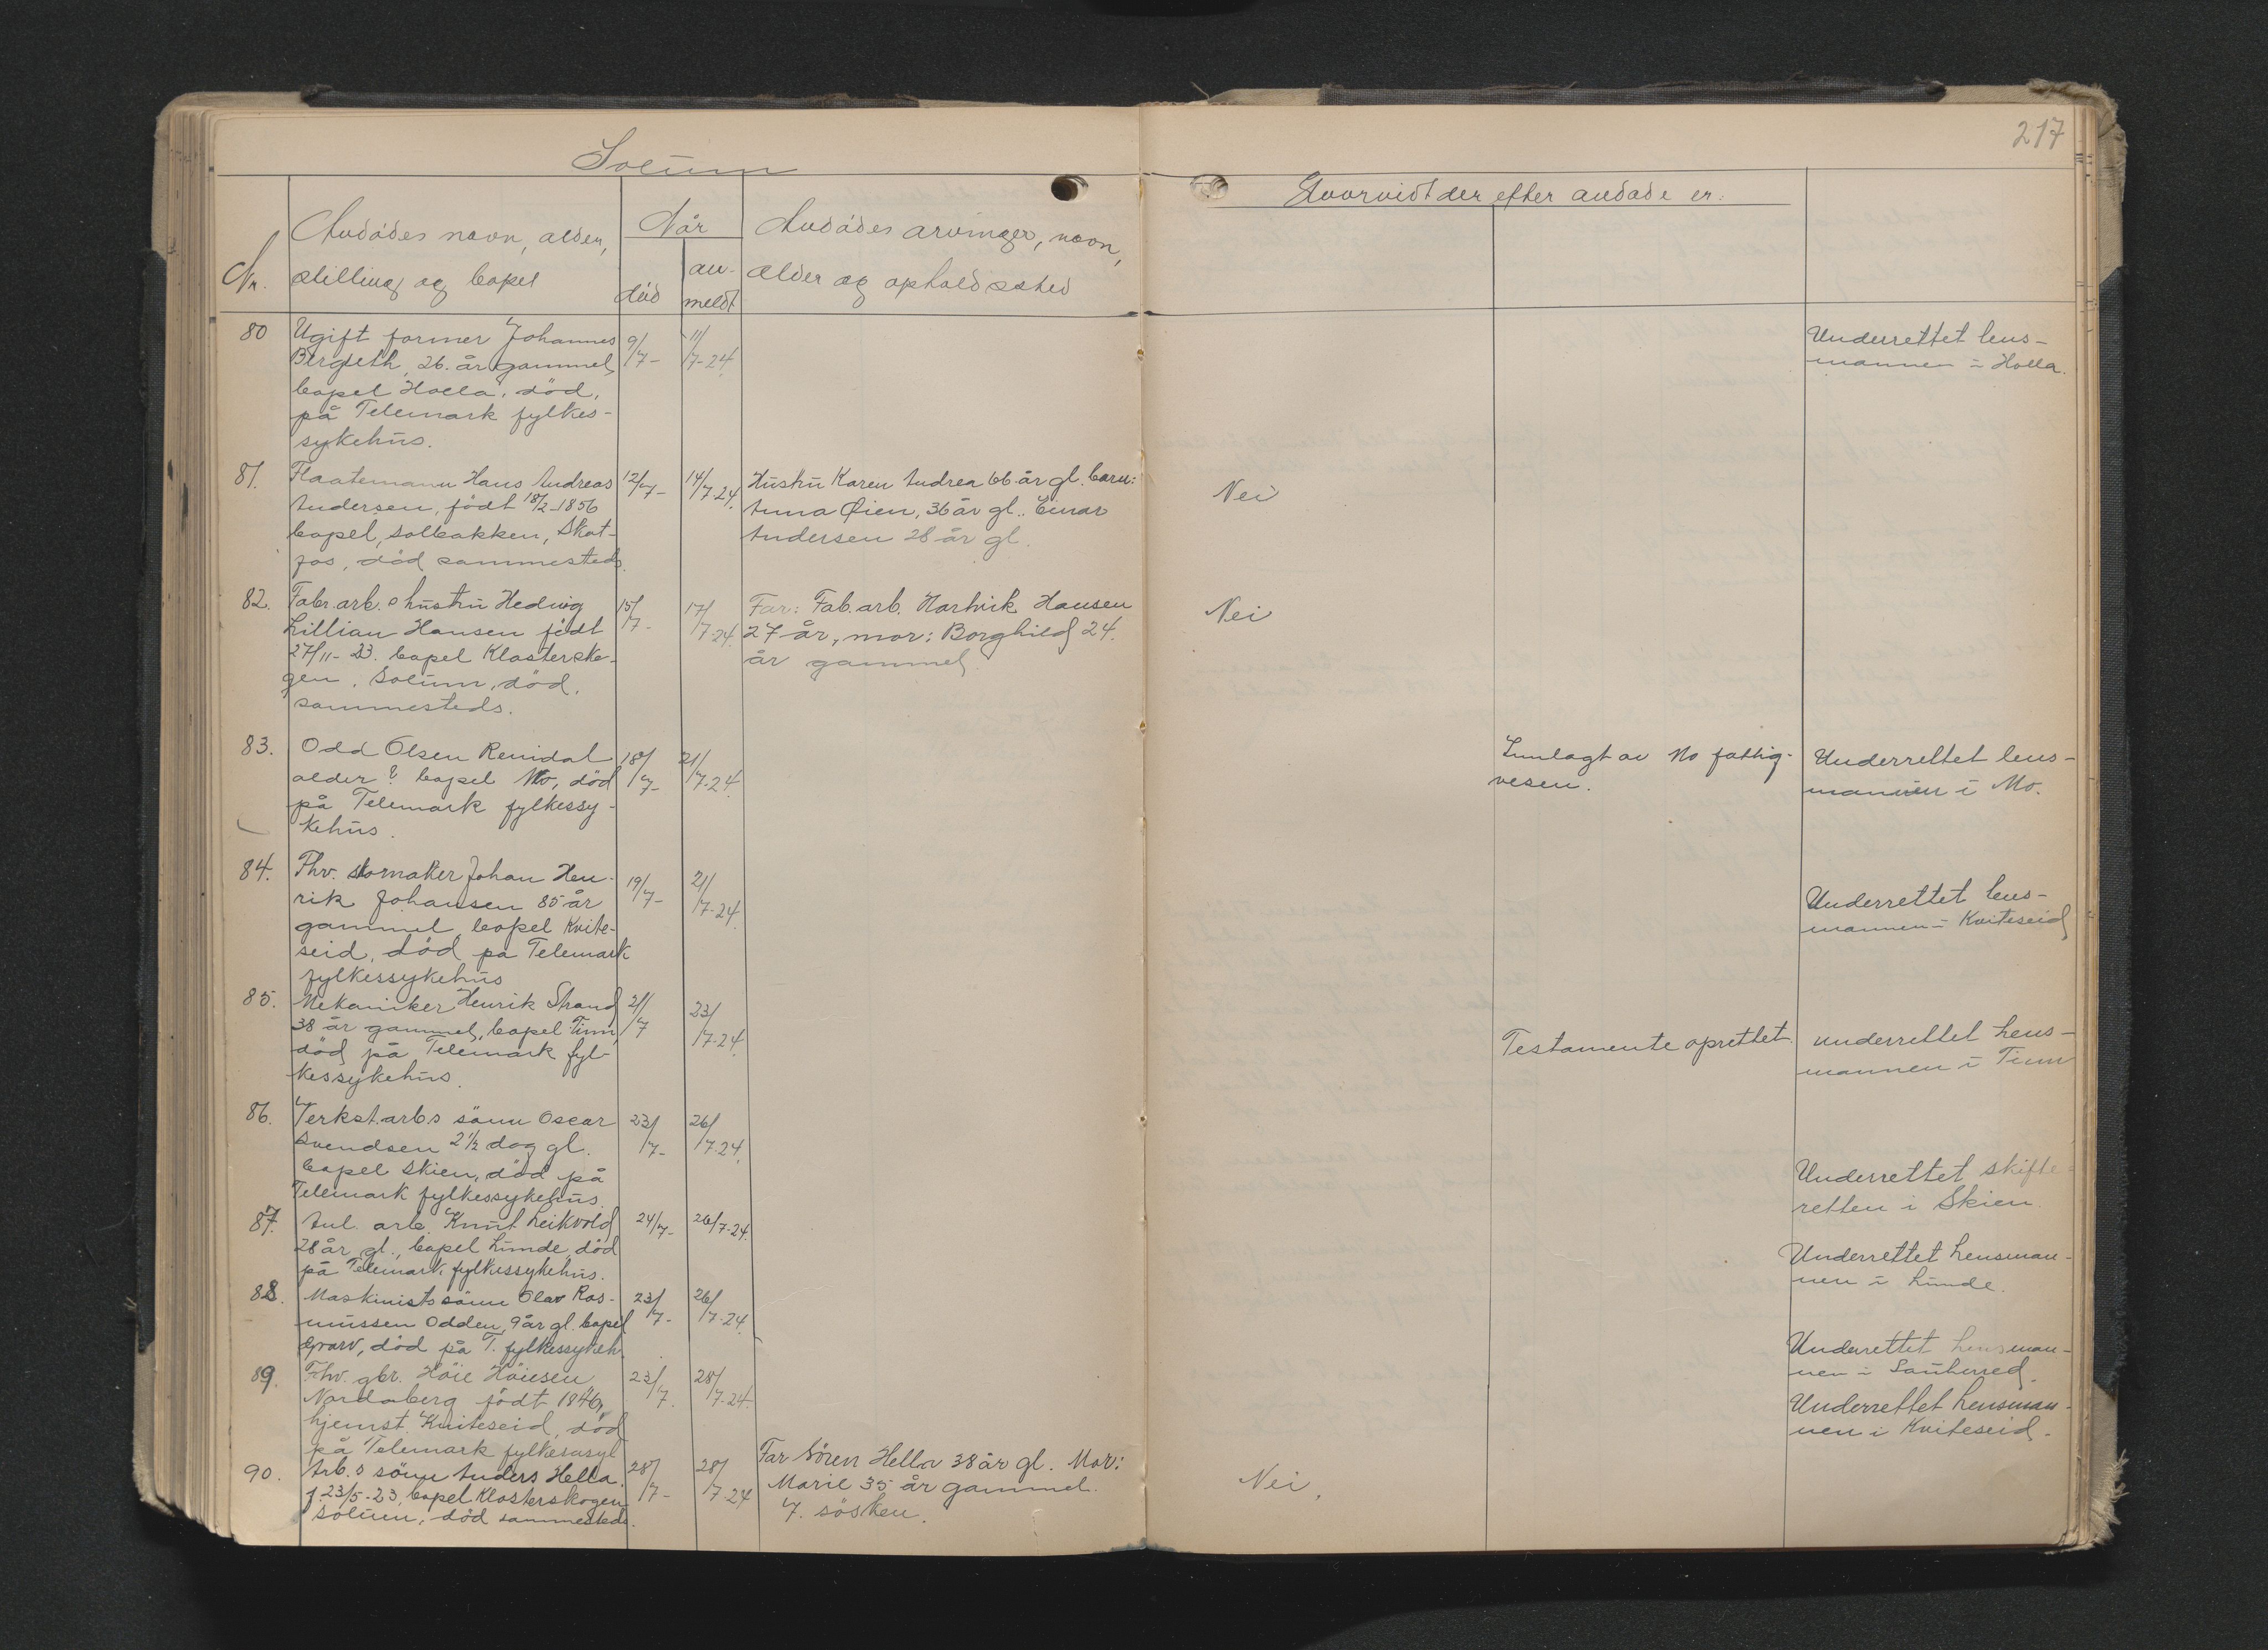 217
Solum
Hvorvidt der efter avdøde er:
Nr.
Avdødes navn, alder,
stilling og bopel
Når
død
an-
meldt
Avdødes arvinger, navn,
alder og opholdssted
80 Ugift former Johannes 9/7- 11/7-24. Underrettet lens-
Bergseth, 26. år gammel, mannen i Holla.
bopel Holla, død,
på Telemark fylkes-
sykehus.
81. Flaatemann Hans Andreas 12/7- 14/7-24. Hustru Karen Andrea 66 år gl. barn: Nei
Andersen, født 18/2-1856 Anna Øien, 36 år gl., Einar
bopel, solbakken, Skot- Andersen 28 år gl.
fos, død sammesteds.
82. Fabr. arb. s hustru Hedvig 15/7- 17/7-24. Far: Fab. arb. Hartvik Hansen Nei
Lillian Hansen født 27 år, mor: Borghild 24.
27/11-23. bopel Klosterско- år gammel
gen, Solum, død,
sammesteds.
83. Odd Olsen Reindal 18/7- 21/7-24. Innlagt av Mo fattig- Underrettet lens-
alder? bopel Mo, død vesen. mannen i Mo.
på Telemark fylkessy-
kehus.
84. Fhv. skomaker Johan Hen- 19/7- 21/7-24. Underrettet lens-
rik Johansen 85 år mannen i Kviteseid
gammel, bopel Kvite-
seid, død på Telemark
fylkessykehus
85. Mekaniker Henrik Strand 21/7 23/7-24. Testamente oprettet. underrettet lens-
38 år gammel, bopel Tinn, mannen i Tinn
død på Telemark fyl-
kessykehus.
86. Verkst.arb.s sönn Oscar 23/7- 26/7-24. Underrettet skifte-
Svendsen 2 1/2 dag gl. retten i Skien.
bopel Skien, død på
Telemark fylkessykehus.
87. Anl. arb. Knut Leikvold 24/7- 26/7-24. Underrettet lensman-
28 år gl., bopel Lunde, død nen i Lunde.
på Telemark fylkessykehus.
88. Maskinists sönn Olav Ras- 23/7- 26/7-24. Underrettet lensman-
mussen Odden, 9 år gl. bopel nen i Sauherred.
Gvarv, død på T. fylkessykeh.
89. Fhv. gbr. Höie Höiesen 23/7. 28/7-24. Underrettet lensman-
Nordaberg født 1846, nen i Kviteseid.
hjemst. Kviteseid, død
på Telemark fylkesasyl
90. Arb.s sönn Anders Hella. 28/7- 28/7-24 Far Sören Hella 38 år gl. Mor: Nei.
f. 23/5-23, bopel Klosterskogen Marie 35 år gammel.
Solum, død sammesteds. 7. sösken.